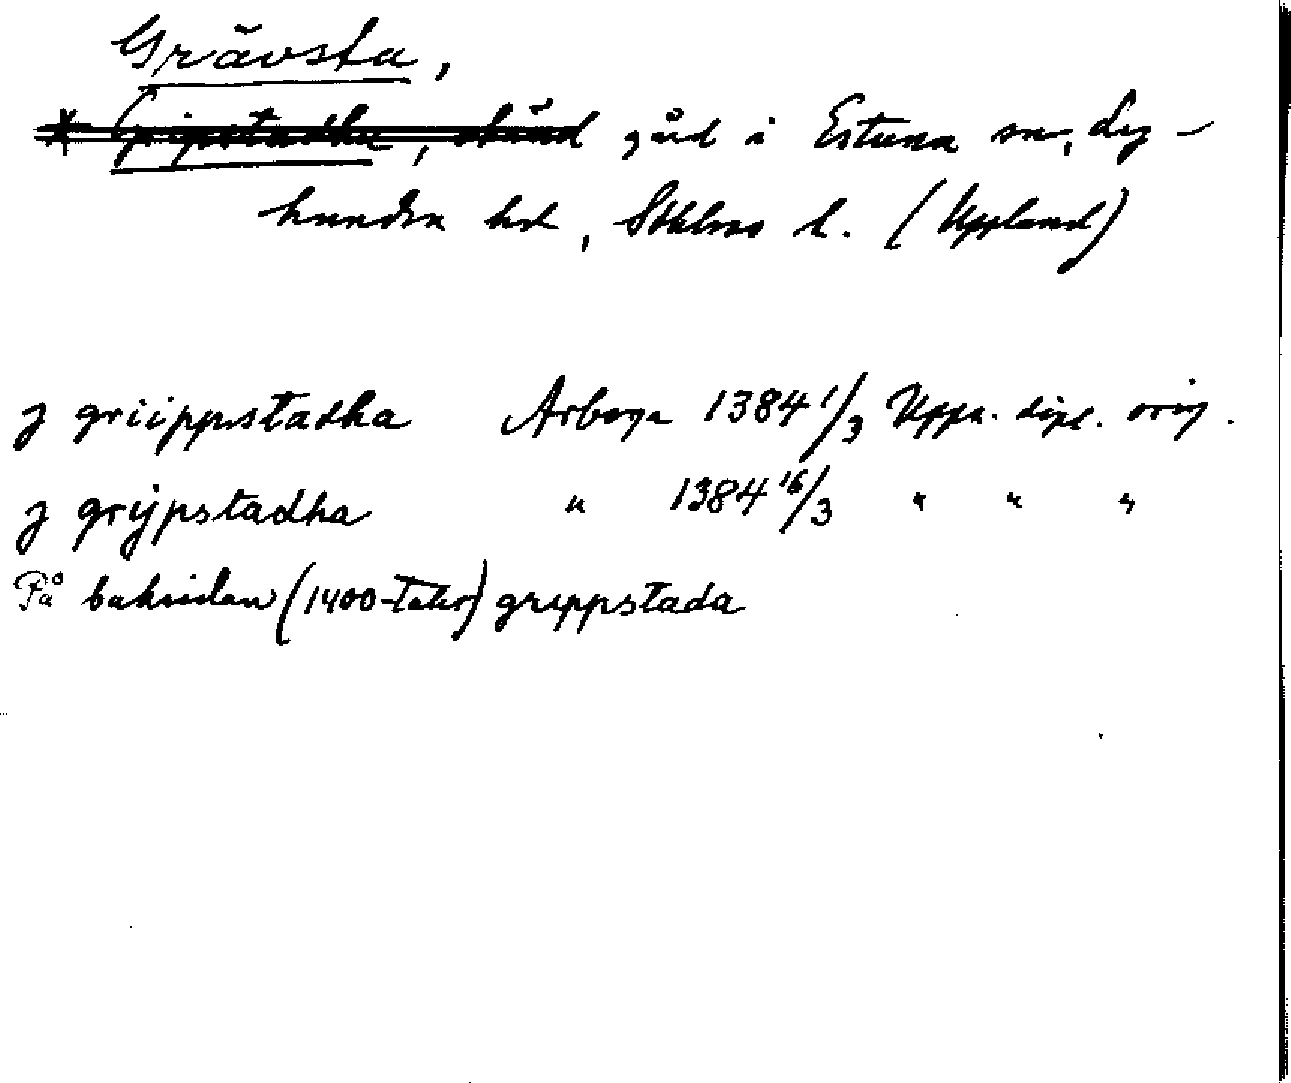 Grävsta,
* Gripstadha, okänd gård i Estuna sn, Lyhundra hd, Sthlms l. (Uppland)
j griippstadha Arboga 1384 1/3 Uppl. dipl. orig.
j grÿpstadha " 1384 16/3 " " "
På baksidan (1400-talet) grippstada